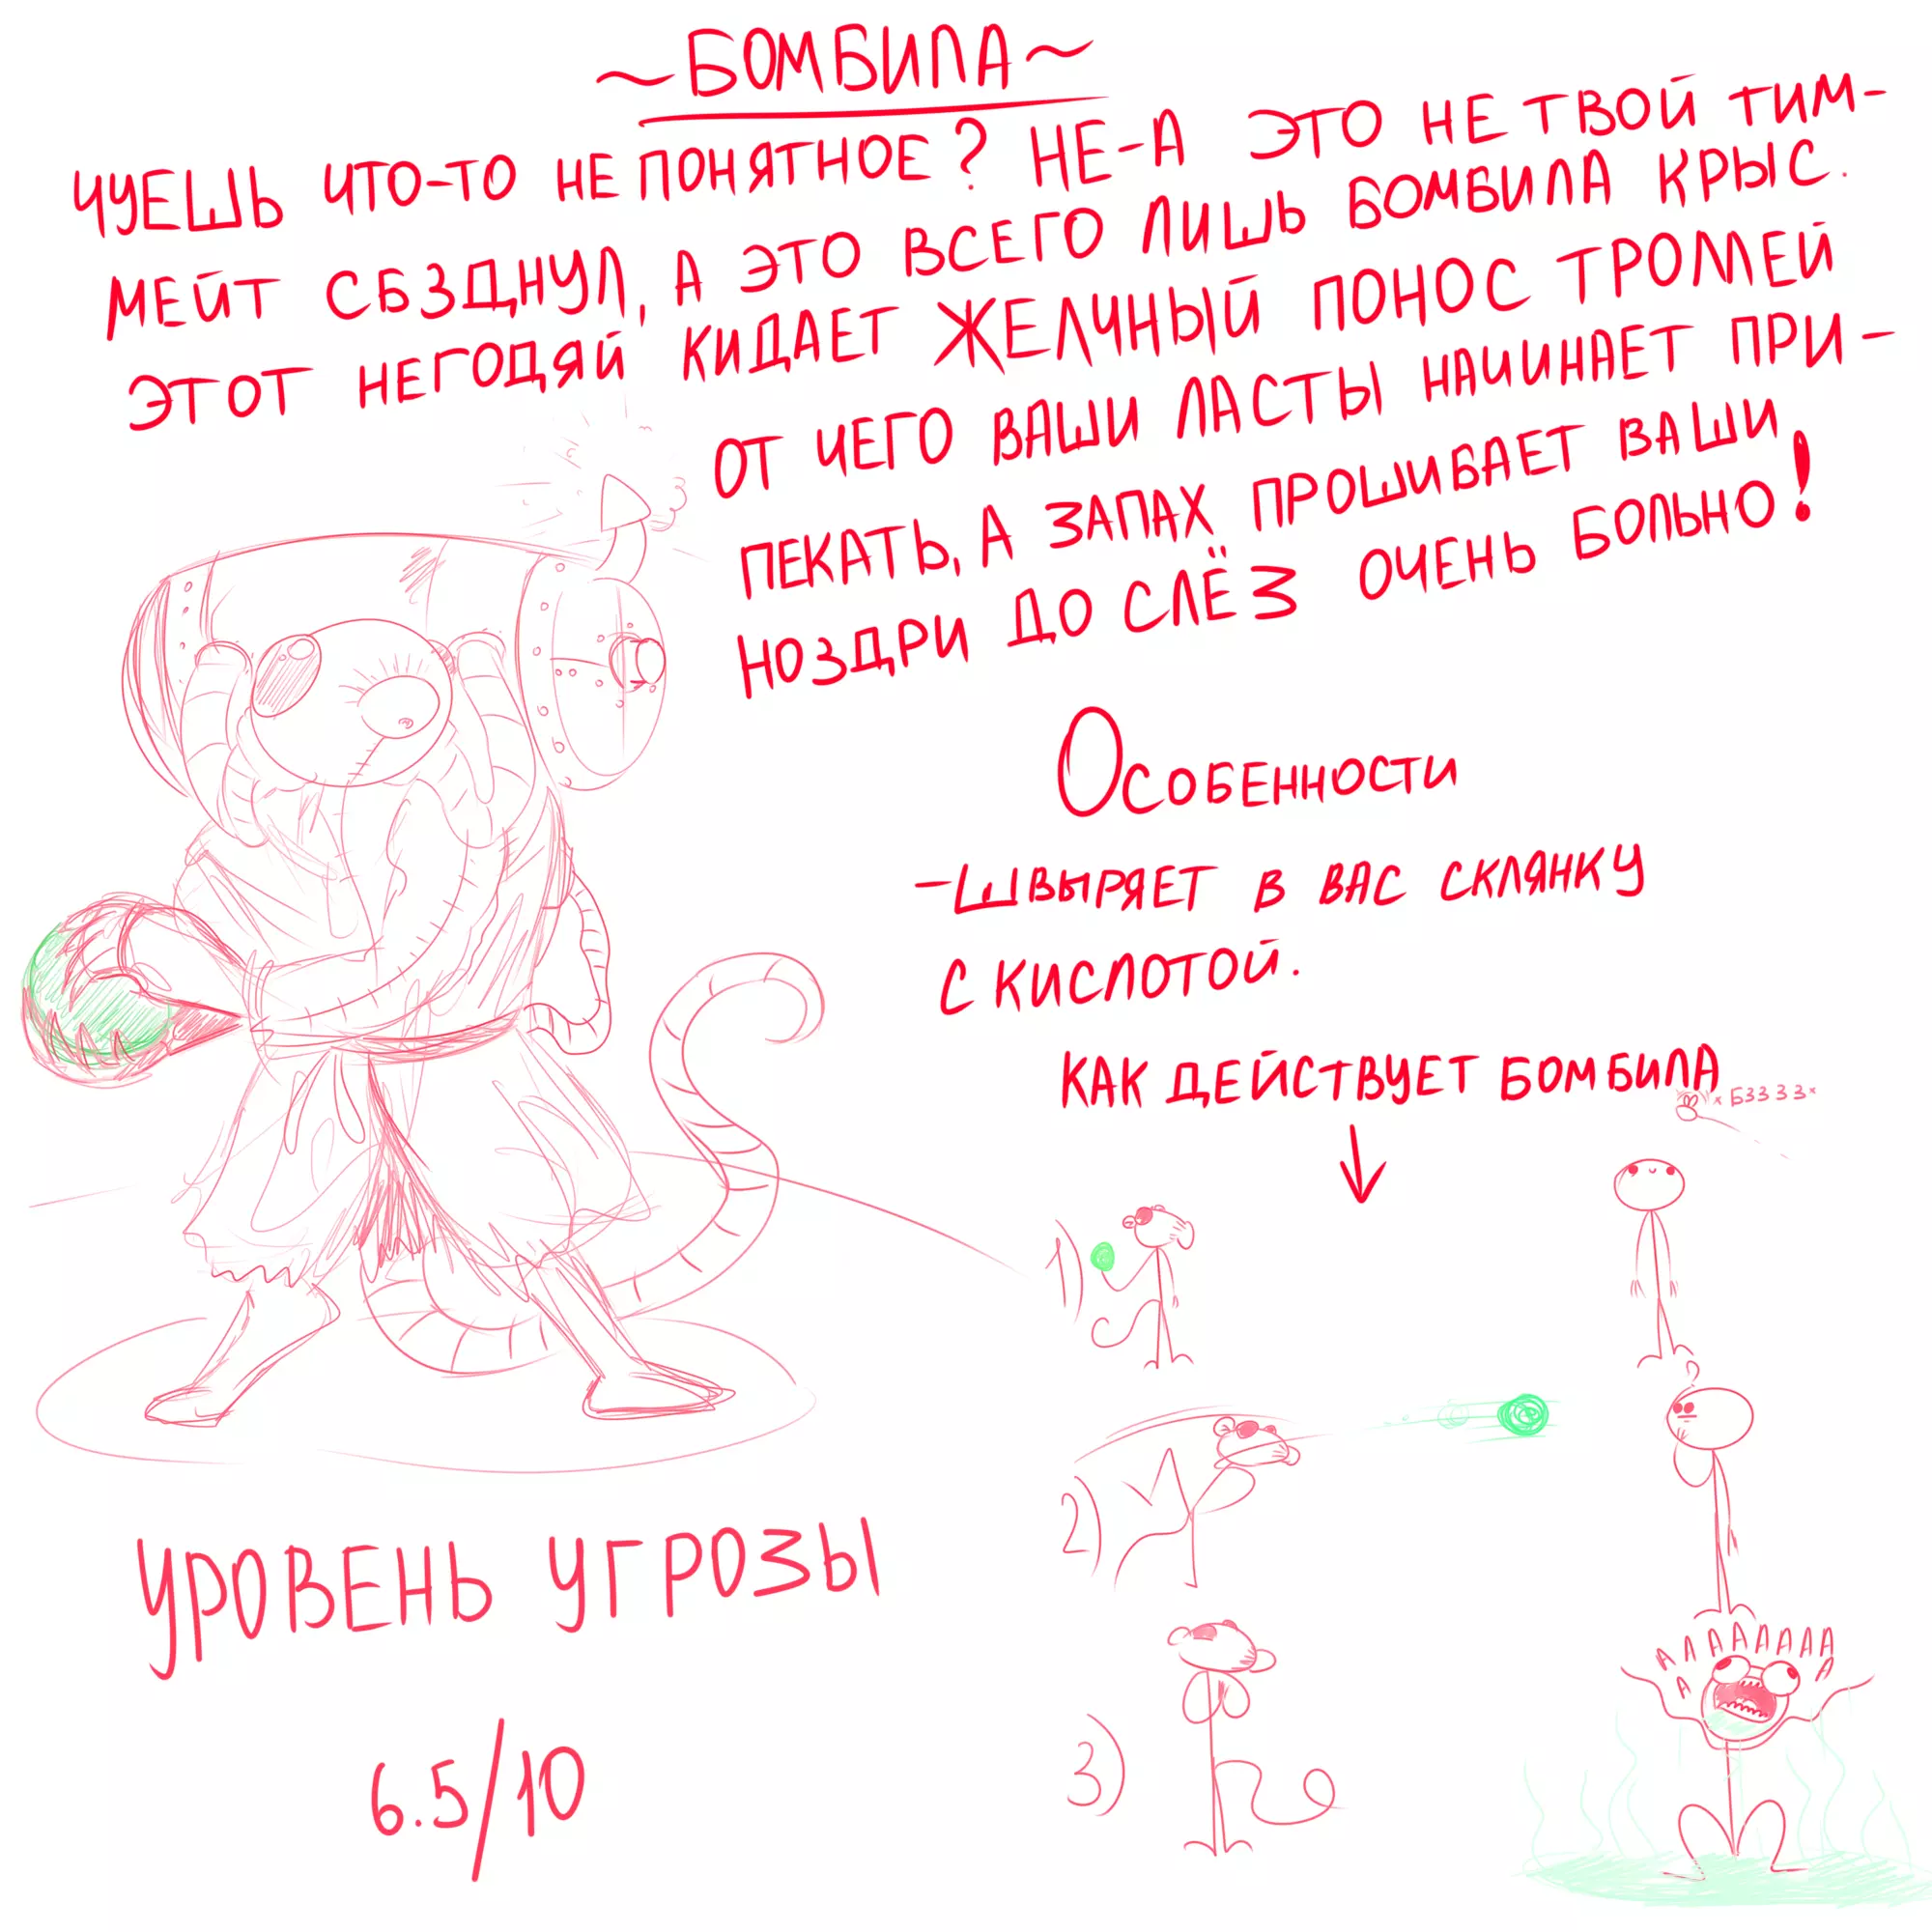 ~БОМБИЛА~
ЧУЕШЬ ЧТО-ТО НЕ ПОНЯТНОЕ? НЕ-А ЭТО НЕ ТВОЙ ТИМ-
МЕЙТ СБЗДНУЛ, А ЭТО ВСЕГО ЛИШЬ БОМБИЛА КРЫС.
ЭТОТ НЕГОДЯЙ КИДАЕТ ЖЕЛЧНЫЙ ПОНОС ТРОМЕЙ
ОТ ЧЕГО ВАШИ ЛАСТЫ НАЧИНАЕТ ПРИ-
ПЕКАТЬ, А ЗАПАХ ПРОШИВАЕТ ВАШИ
НОЗДРИ ДО СЛЁЗ ОЧЕНЬ БОЛЬНО!
ОСОБЕННОСТИ
-ШВЫРЯЕТ В ВАС СКЛЯНКУ
С КИСЛОТОЙ.
КАК ДЕЙСТВУЕТ БОМБИЛА
*БЗЗЗЗ*
1)
2)
?
3)
АААААААА
А А
УРОВЕНЬ УГРОЗЫ
6.5/10